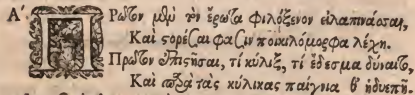 Α΄ ΠΡῶτον μὲν τὸν ἔρωτα φιλόξενον εἰλαπινάσαι,
Καὶ στορέσαι φασὶν ποικιλόμορφα λέχη.
Πρῶτον ἐπιστῆσαι, τί κύλιξ, τί ἔδεσμα δύναιτο,
Καὶ παρὰ τὰς κύλικας παίγνια β΄ ἡδυεπῆ.